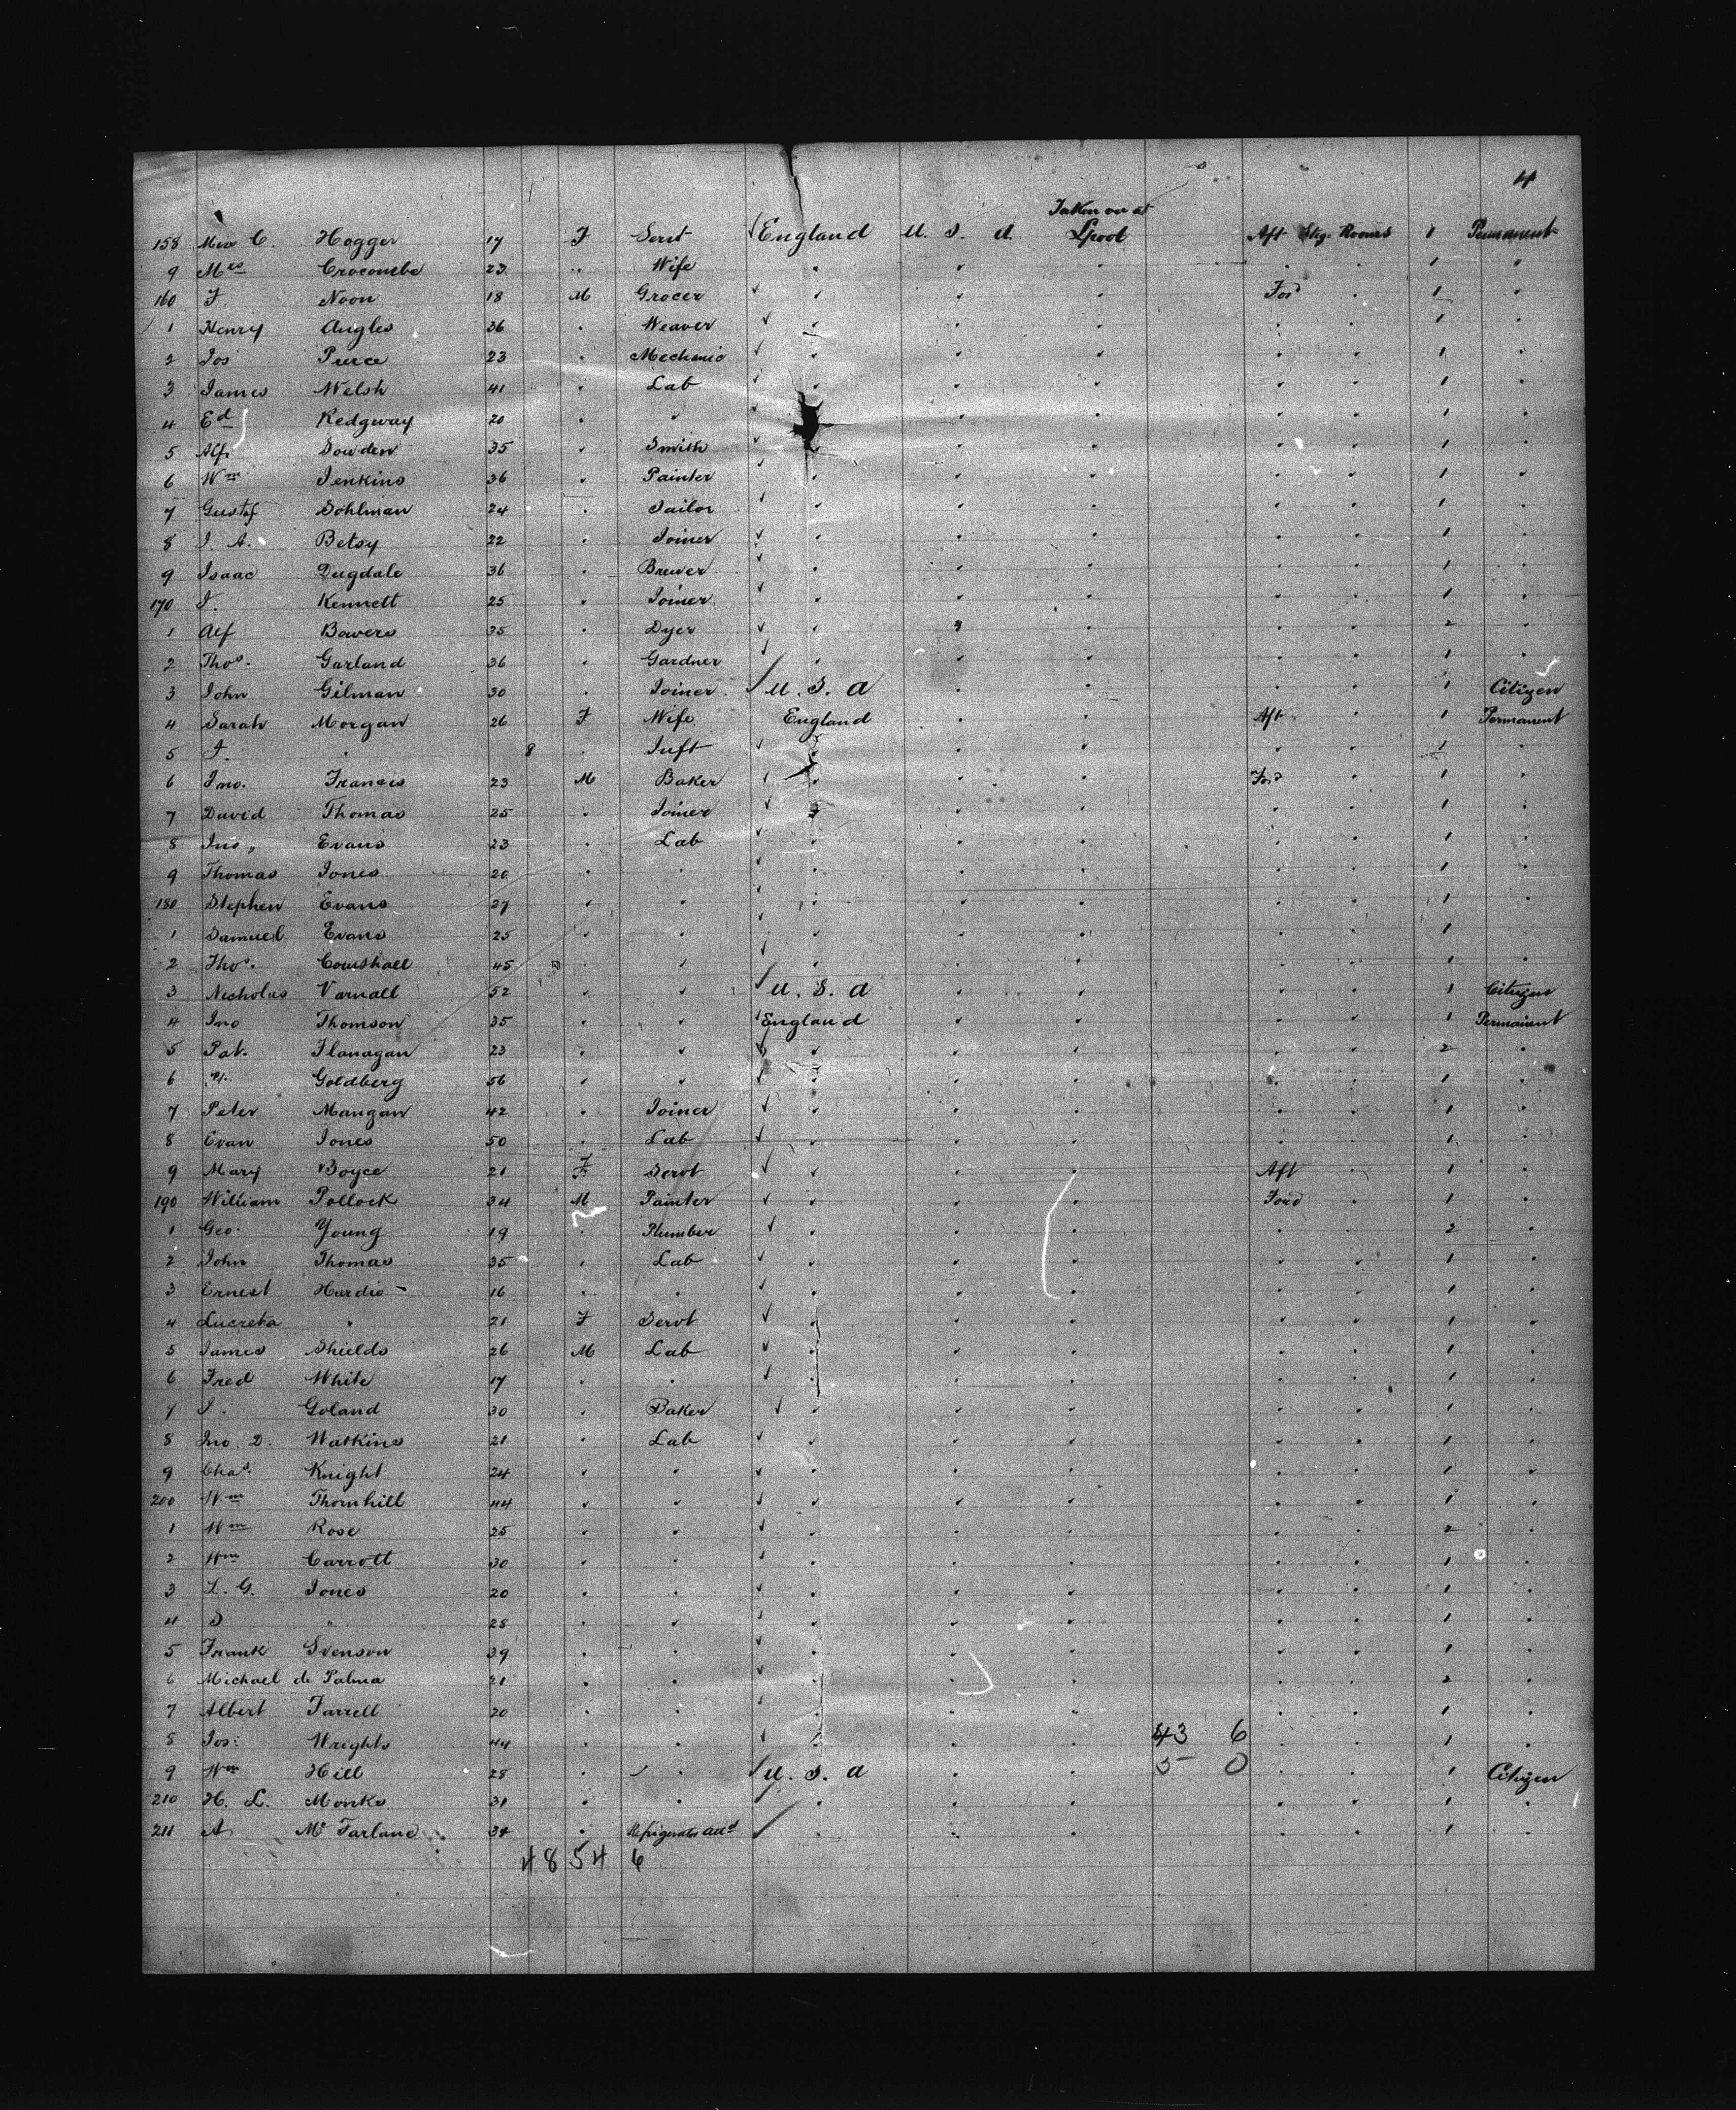 4
Taken on at
158 Miss C. Hogger 17 F Servt England U. S. A. Lpool Aft Stge Rooms 1 Permanent
9 Mrs Crocombe 23 " Wife " " " " " 1 "
160 F. Noon 18 M Grocer " " " Ford " 1 "
1 Henry Angles 36 " Weaver " " " " " 1 "
2 Jos Pierce 23 " Mechanic " " " " " 1 "
3 James Welsh 41 " Lab " " " " " 1 "
4 Ed Redgway 20 " " " " " " " 1 "
5 Alf. Sowden 35 " Smith " " " " " 1 "
6 Wm Jenkins 36 " Painter " " " " " 1 "
7 Gustaf Sohlman 24 " Tailor " " " " " 1 "
8 J. A. Betsy 22 " Joiner " " " " " 1 "
9 Isaac Dugdale 36 " Brewer " " " " " 1 "
170 J. Kennett 25 " Joiner " " " " " 1 "
1 Alf Bowers 35 " Dyer " " " " " 2 "
2 Thos. Garland 36 " Gardner " " " " " 1 "
3 John Gilman 30 " Joiner U. S. A " " " " 1 Citizen
4 Sarah Morgan 26 F Wife England " " Aft " 1 Permanent
5 F. " 8 " Inft " " " " " 1 "
6 Jno. Francis 23 M Baker " " " Ford " 1 "
7 David Thomas 25 " Joiner " " " " " 1 "
8 Jno, Evans 23 " Lab " " " " " 1 "
9 Thomas Jones 20 " " " " " " " 1 "
180 Stephen Evans 27 " " " " " " " 1 "
1 Samuel Evans 25 " " " " " " " 1 "
2 Thos. Coushall 45 " " " " " " " 1 "
3 Nicholas Varnall 52 " " U. S. A " " " " 1 Citizen
4 Jno Thomson 35 " " England " " " " 1 Permanent
5 Pat. Flanagan 23 " " " " " " " 2 "
6 Goldberg 56 " " " " " " " 1 "
7 Peter Mangan 42 " Joiner " " " " " 1 "
8 Evan Jones 50 " Lab " " " " " 1 "
9 Mary Boyce 21 F Servt " " " Aft " 1 "
190 William Pollock 34 M Painter " " " Ford " 1 "
1 Geo. Young 19 " Plumber " " " " " 2 "
2 John Thomas 35 " Lab " " " " " 1 "
3 Ernest Hardie 16 " " " " " " " 1 "
4 Lucreta " 21 F Servt " " " " " 1 "
5 James Shields 26 M Lab " " " " " 1 "
6 Fred White 17 " " " " " " " 1 "
7 J. Goland 30 " Baker " " " " " 1 "
8 Jno. D. Watkins 21 " Lab " " " " " 1 "
9 Chas. Knight 24 " " " " " " " 1 "
200 Wm Thornhill 44 " " " " " " " 1 "
1 Wm Rose 25 " " " " " " " 2 "
2 Wm Carrott 30 " " " " " " " 1 "
3 L. G. Jones 20 " " " " " " " 1 "
4 D " 28 " " " " " " " 1 "
5 Frank Svenson 39 " " " " " " " 1 "
6 Michael de Palma 21 " " " " " " " 2 "
7 Albert Farrell 20 " " " " " " " 1 "
8 Jos: Wrights 44 " " " " " 43 6 " " 1 "
9 Wm Hill 28 " " U. S. A " " 5 0 " " 1 Citizen
210 H. L. Monks 31 " " " " " " " 1 "
211 A McFarland 34 " Refrigerator Attd " " " " " 1 "
48 54 6